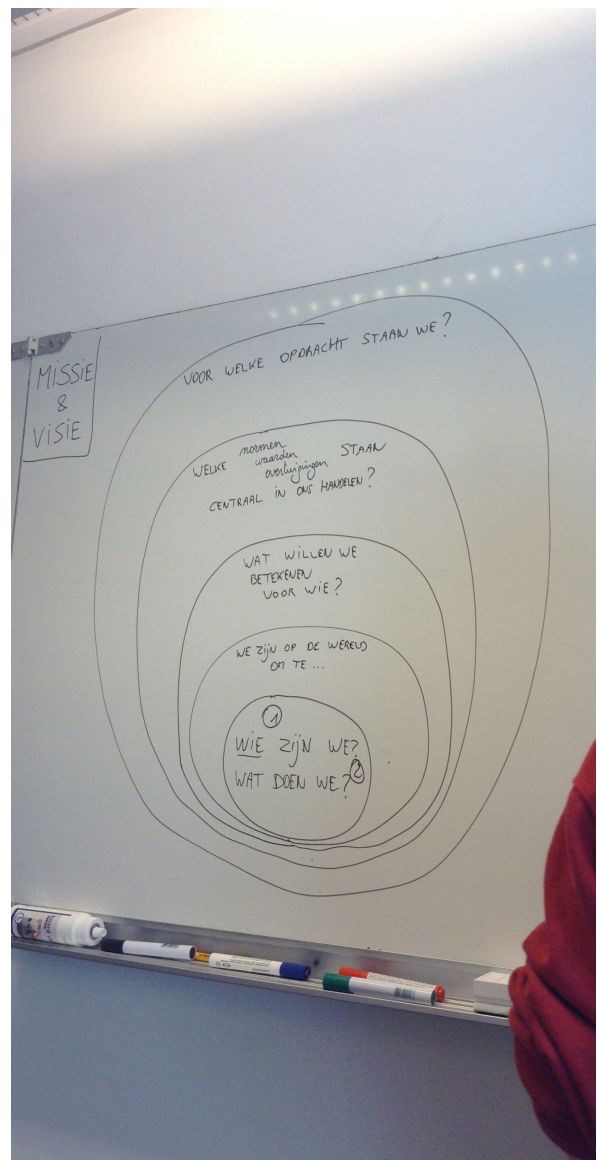 MISSIE
&
VISIE
VOOR WELKE OPDRACHT STAAN WE?
normen
WELKE waarden STAAN
overtuigingen
CENTRAAL IN ONS HANDELEN?
WAT WILLEN WE
BETEKENEN
VOOR WIE?
WE ZIJN OP DE WERELD
OM TE ...
1
WIE ZIJN WE?
WAT DOEN WE? 2